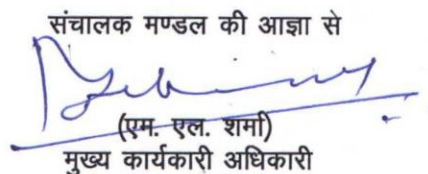 संचालक मण्डल की आज्ञा से
(एम. एल. शर्मा)
मुख्य कार्यकारी अधिकारी